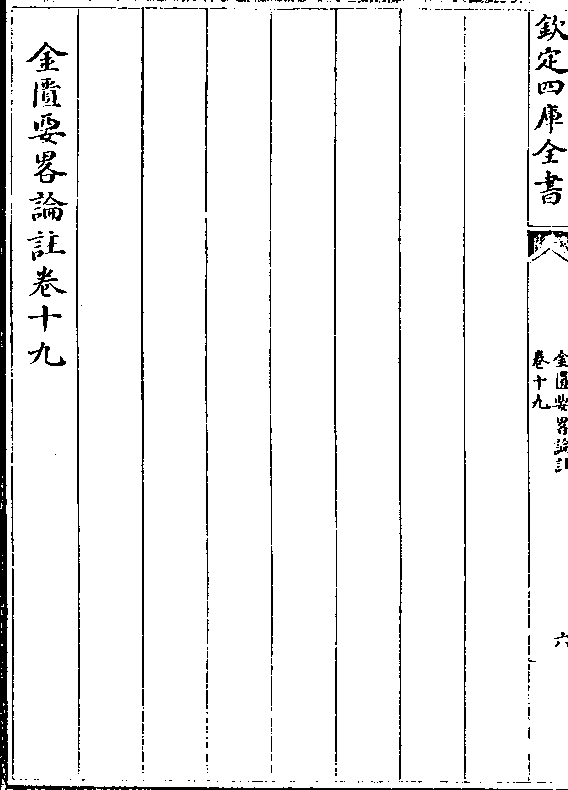 欽定四庫全書
金匱要畧論註
卷十九
六
金匱要畧論註卷十九